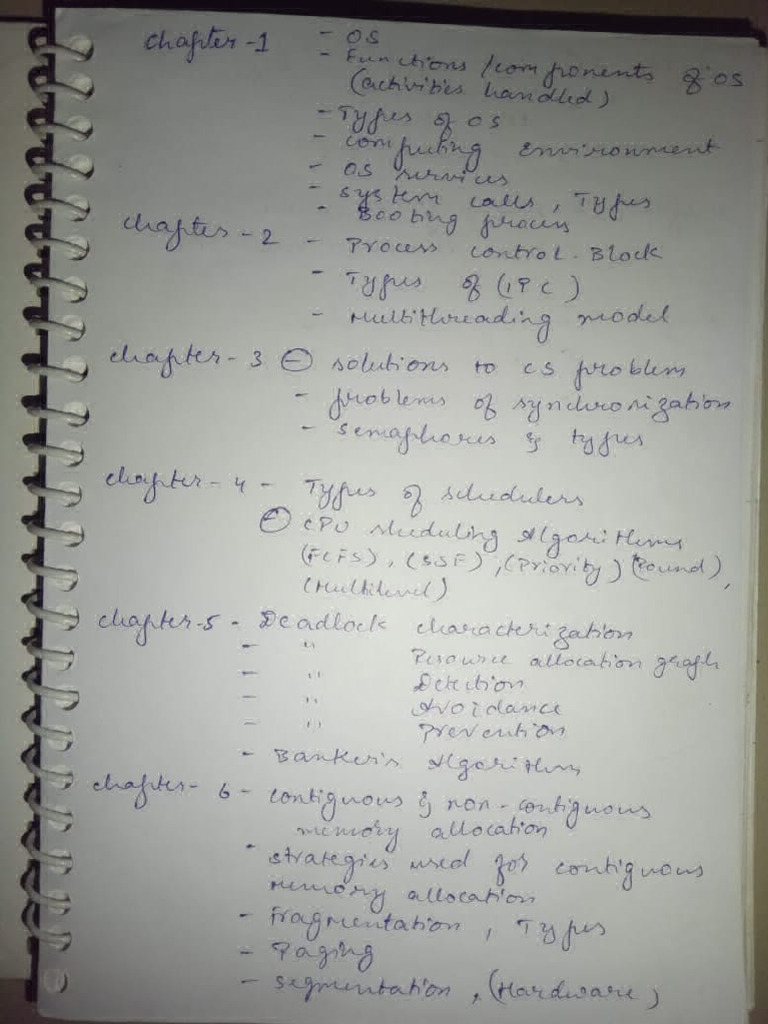 chapter-1 - OS
- Functions / components of OS
(activities handled)
- Types of OS
- computing Environment
- OS services
- System calls, Types
- Booting process
chapter-2 - Process control Block
- Types of (IPC)
- Multithreading model
chapter-3 - solutions to CS problem
- problems of synchronization
- semaphores & types
chapter-4 - Types of schedulers
- CPU sheduling Algorithms
(FCFS), (SSF), (Priority) (Round),
(Multilevel)
chapter-5 - Deadlock characterization
- " Resource allocation graph
- " Detection
- " Avoidance
- " Prevention
- Banker's Algorithm
chapter-6 - contiguous & non-contiguous
memory allocation
- strategies used for contiguous
memory allocation
- Fragmentation, Types
- Paging
- segmentation, (Hardware)